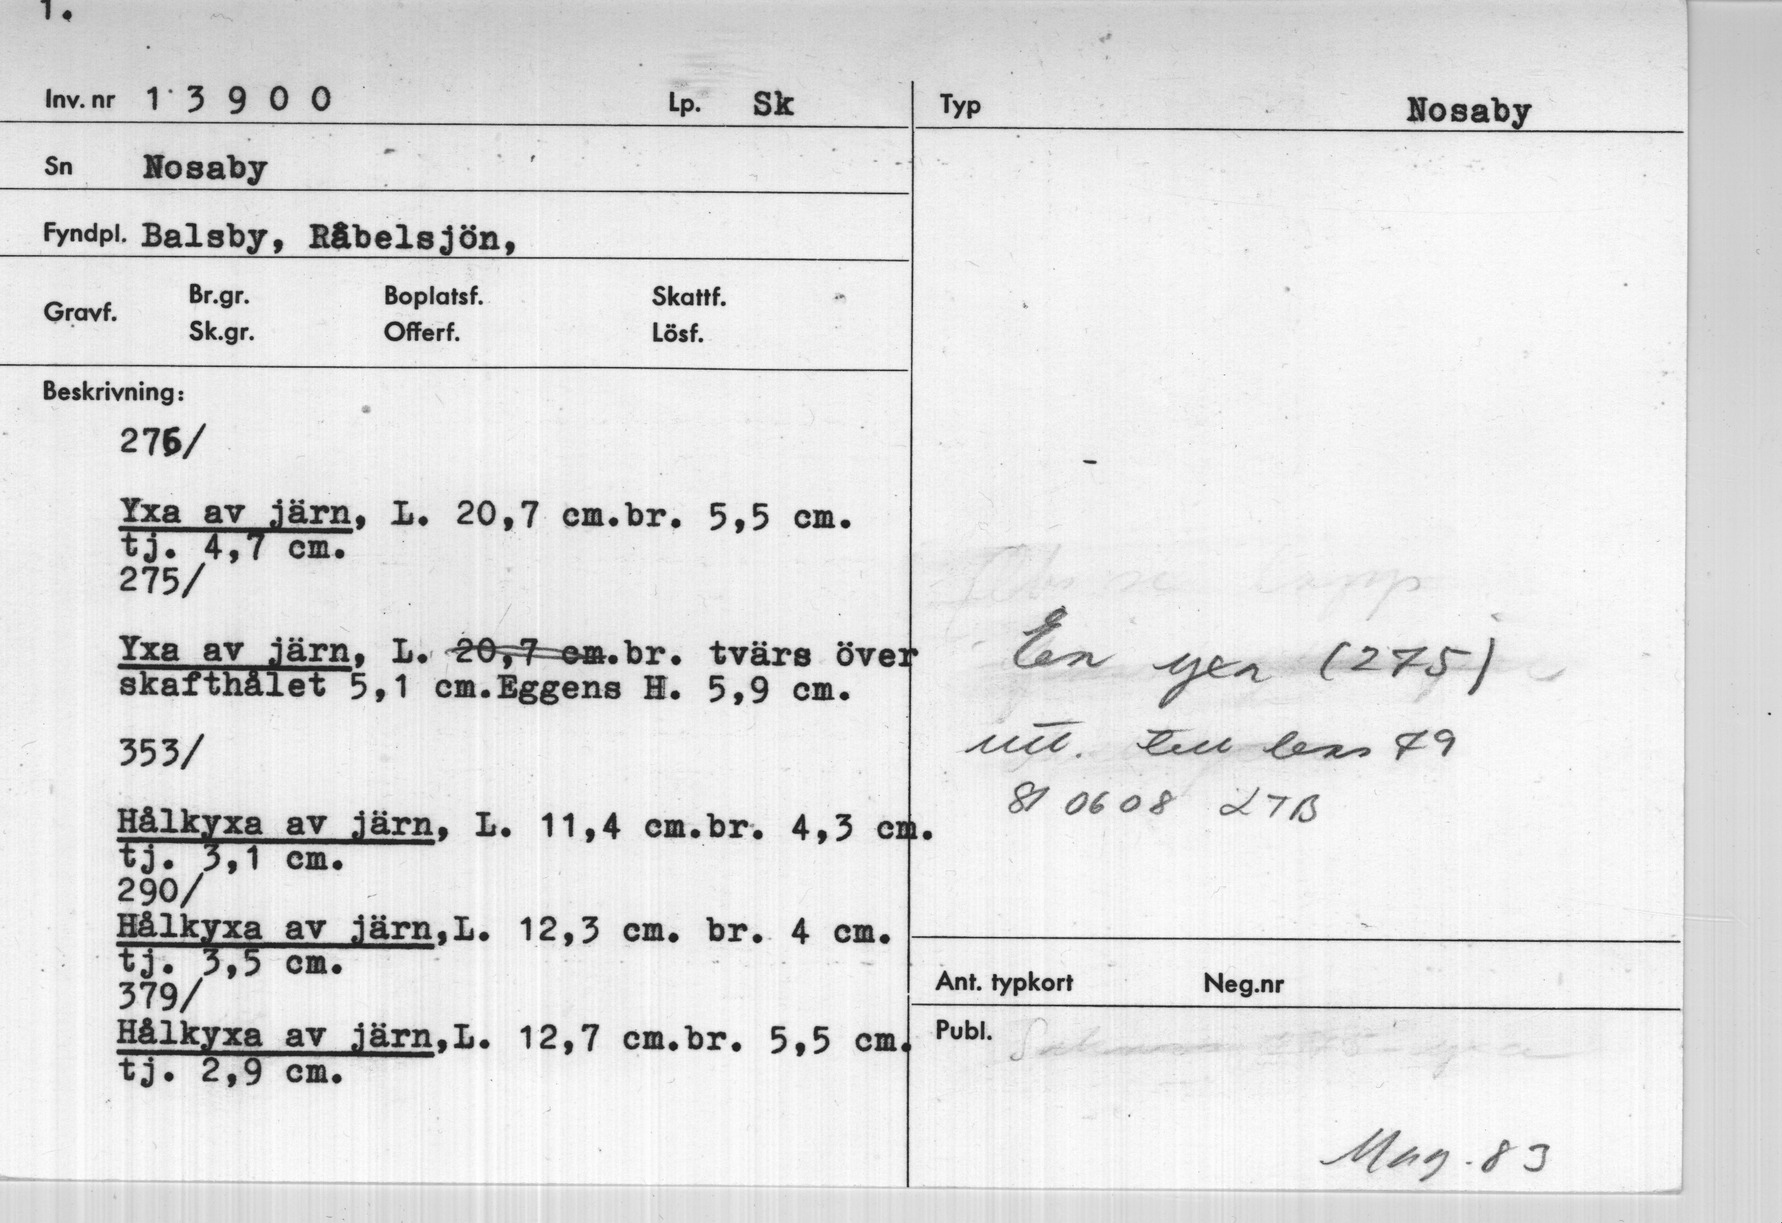 1.
Inv. nr 1 3 9 0 0 Lp. Sk
Sn Nosaby
Fyndpl. Balsby, Råbelsjön,
Gravf. Br.gr. Boplatsf. Skattf.
Sk.gr. Offerf. Lösf.
Beskrivning:
276/
Yxa av järn, L. 20,7 cm.br. 5,5 cm.
tj. 4,7 cm.
275/
Yxa av järn, L. 20,7 cm.br. tvärs över
skafthålet 5,1 cm.Eggens H. 5,9 cm.
353/
Hålkyxa av järn, L. 11,4 cm.br. 4,3 cm.
tj. 3,1 cm.
290/
Hålkyxa av järn,L. 12,3 cm. br. 4 cm.
tj. 3,5 cm.
379/
Hålkyxa av järn,L. 12,7 cm.br. 5,5 cm.
tj. 2,9 cm.
Typ Nosaby
En yxa (275)
utl. till 79
810608 LTB
Ant. typkort Neg.nr
Publ.
Mag. 83